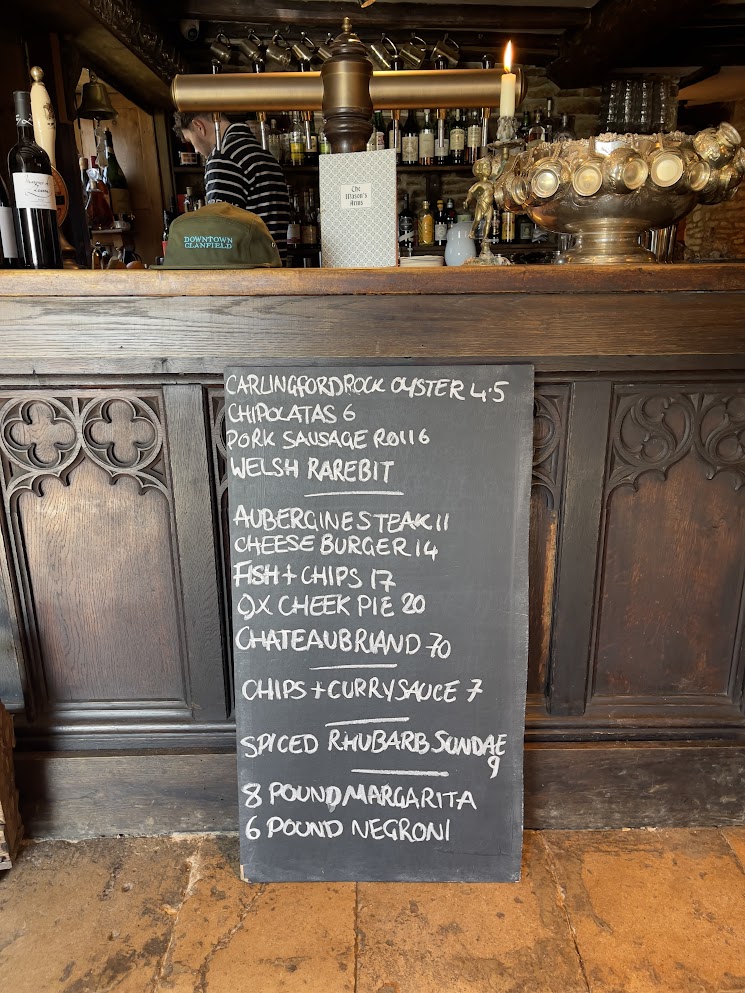 DOWNTOWN
CLANFIELD
The
Mason's
Arms
CARLINGFORD ROCK OYSTER 4.5
CHIPOLATAS 6
PORK SAUSAGE ROLL 6
WELSH RAREBIT
AUBERGINE STEAK 11
CHEESE BURGER 14
FISH + CHIPS 17
OX CHEEK PIE 20
CHATEAUBRIAND 70
CHIPS + CURRY SAUCE 7
SPICED RHUBARB SUNDAE
9
8 POUND MARGARITA
6 POUND NEGRONI